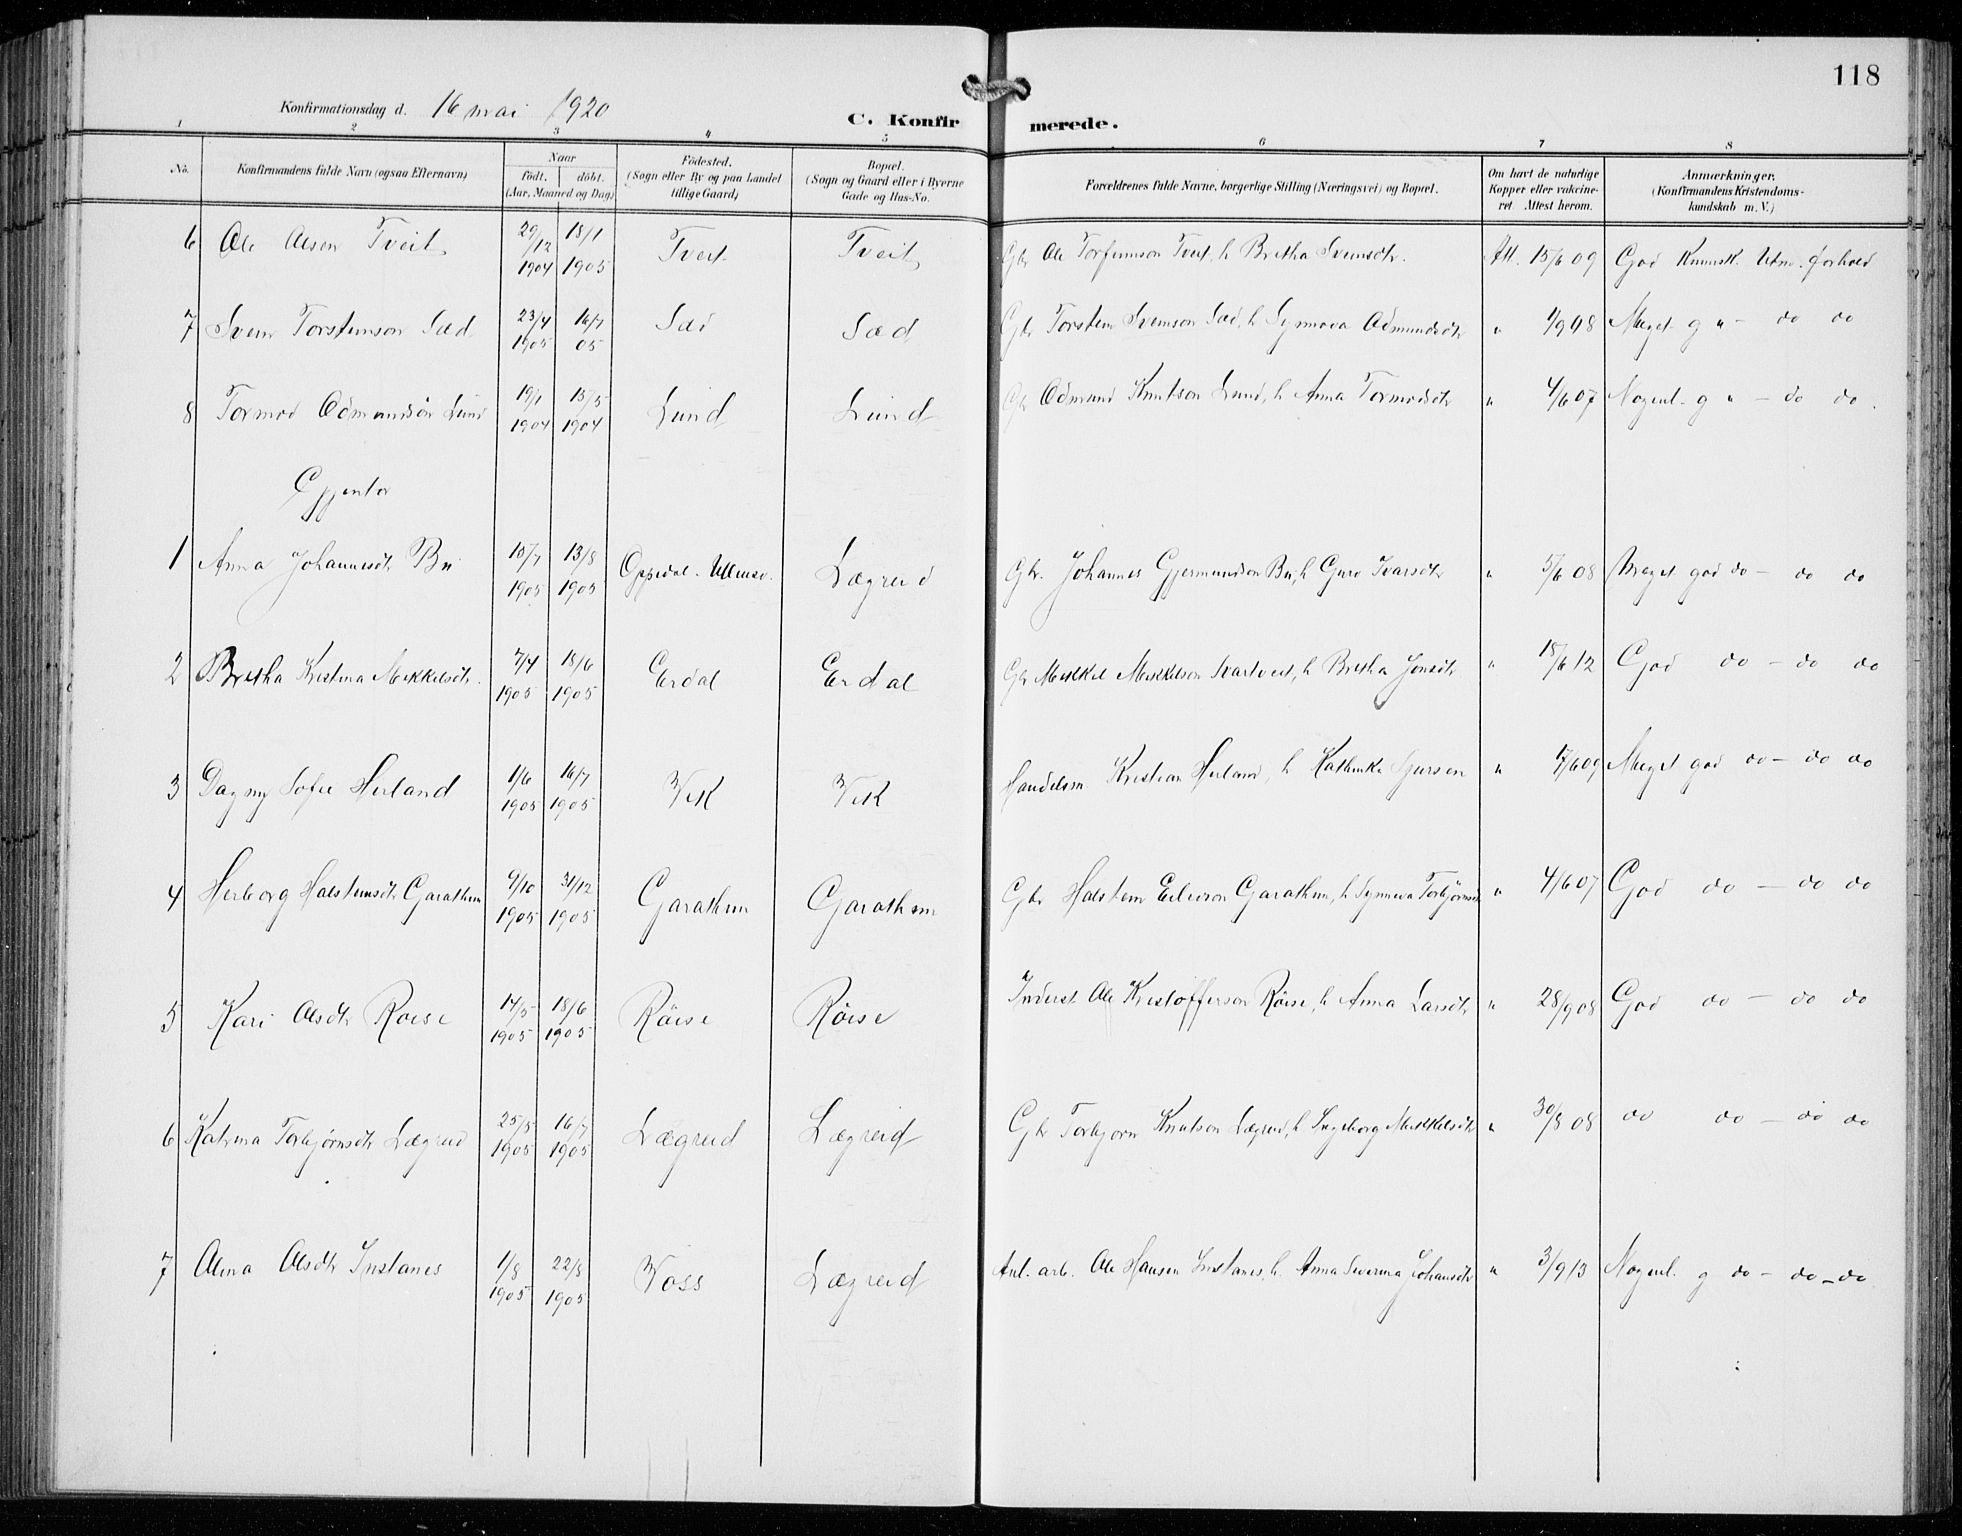 118
Konfirmationsdag d. 16 mai 1920
C. Konfirmerede.
1 2 3 4 5 6 7 8
No. Konfirmandens fulde Navn (ogsaa Efternavn) Naar født. døbt. (Aar, Maaned og Dag) Fødested. (Sogn eller By og paa Landet tillige Gaard) Bopæl. (Sogn og Gaard eller i Byerne Gade og Hus-No. Forældrenes fulde Navne, borgerlige Stilling (Næringsvei) og Bopæl. Om havt de naturlige Kopper eller vakcineret. Attest herom. Anmærkninger. (Konfirmandens Kristendomskundskab m. V.)
6 Ole Olsen Tveit 29/12 1904 18/1 1905 Tveit Tveit Gbr Ole Torfinnson Tveit, h Bretha Svensdtr. Att. 15/6 09 God Kunnsk. Udm. forhold
7 Svein Torsteinson Sæd 23/4 1905 16/7 05 Sæd Sæd Gbr Torstein Sveinson Sæd, h Synnøva Odmundsdtr " 1/9 08 Meget g " - do do
8 Tormod Odmundsön Lund 19/1 1904 15/5 1904 Lund Lund Gbr Odmund Knutson Lund, h Anna Tormodsdtr " 4/6 07 Nogenl. g " - do do.
Gjentor
1 Anna Johannesdtr Bu 10/7 1905 13/8 1905 Oppedal - Ullensv. Lægreid Gbr. Johannes Gjermundson Bu, h Guro Ivarsdtr " 5/6 08 Meget god do - do do
2 Bretha Kristina Mikkelsdtr. 7/4 1905 18/6 1905 Erdal Erdal Gbr Mikkel Mikkelson Svartveit, h Bretha Jonsdtr " 18/6 12 God do - do do
3 Dagny Sofie Herland 1/6 1905 16/7 1905 Vik Vik Handelsm Kristian Herland, h Kathinka Sjursen " 17/6 09 Meget god do - do do
4 Herborg Halsteinsdtr Garathun 9/10 1905 31/12 1905 Garathun Garathun Gbr Halstein Eilivson Garathun, h Synneva Torbjørnsd " 4/6 07 God do - do do
5 Kari Olsdtr Röise 14/5 1905 18/6 1905 Röise Röise Inderst Ole Kristofferson Röise, h Anna Larsdtr " 28/9 08 God do - do do
6 Katrina Torbjørnsdtr Lægreid 25/5 1905 16/7 1905 Lægreid Lægreid Gbr Torbjørn Knutson Lægreid, h Ingeborg Mikkelsdtr " 30/8 08 do do - do do
7 Olina Olsdtr Instanes 1/8 1905 22/8 1905 Voss Lægreid Anl. arb. Ole Hansen Instanes, h Anna Severina Johansdtr " 3/9 13 Nogenl. g do - do - do